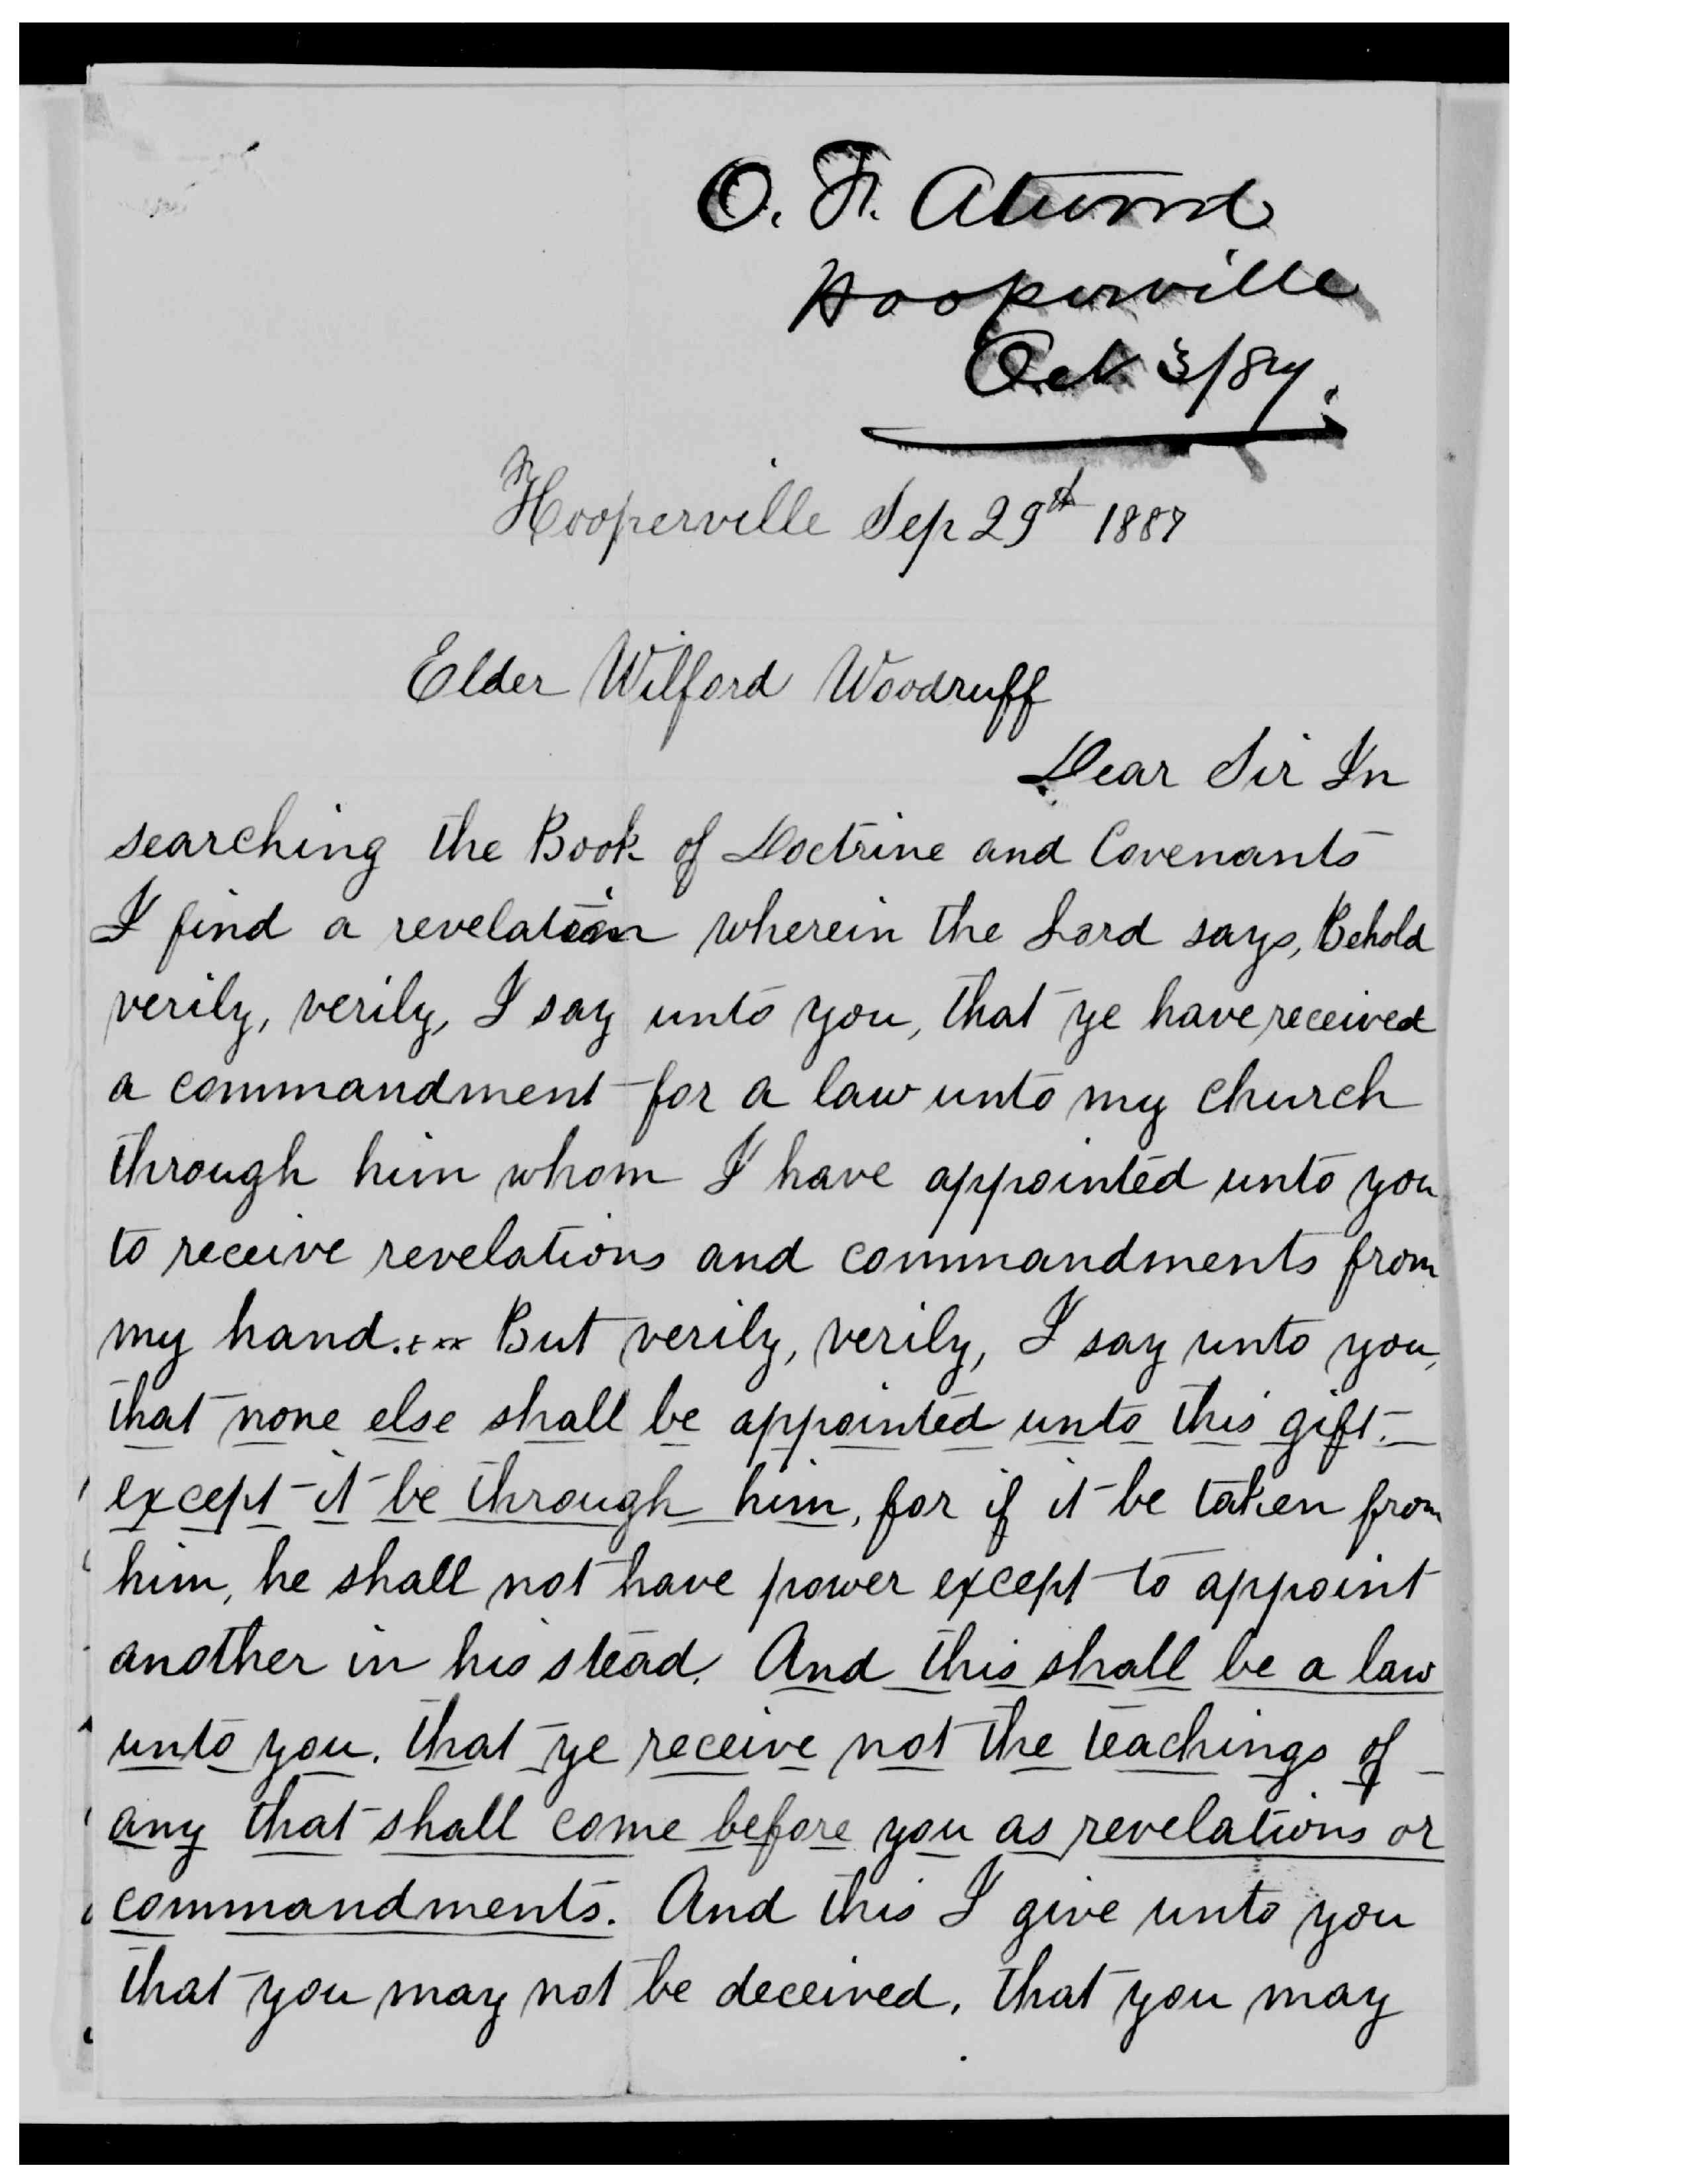 O. F. Atwood
Hooperville
Oct 3/87.
Hooperville Sep 29th 1887
Elder Wilford Woodruff
Dear Sir In
searching the Book of Doctrine and Covenants
I find a revelation wherein the Lord says, Behold
verily, verily, I say unto you, that ye have received
a commandment for a law unto my church
through him whom I have appointed unto you
to receive revelations and commandments from
my hand.*** But verily, verily, I say unto you,
that none else shall be appointed unto this gift
except it be through him, for if it be taken from
him, he shall not have power except to appoint
another in his stead. And this shall be a law
unto you. that ye receive not the teachings of
any that shall come before you as revelations or
commandments. And this I give unto you
that you may not be deceived, that you may